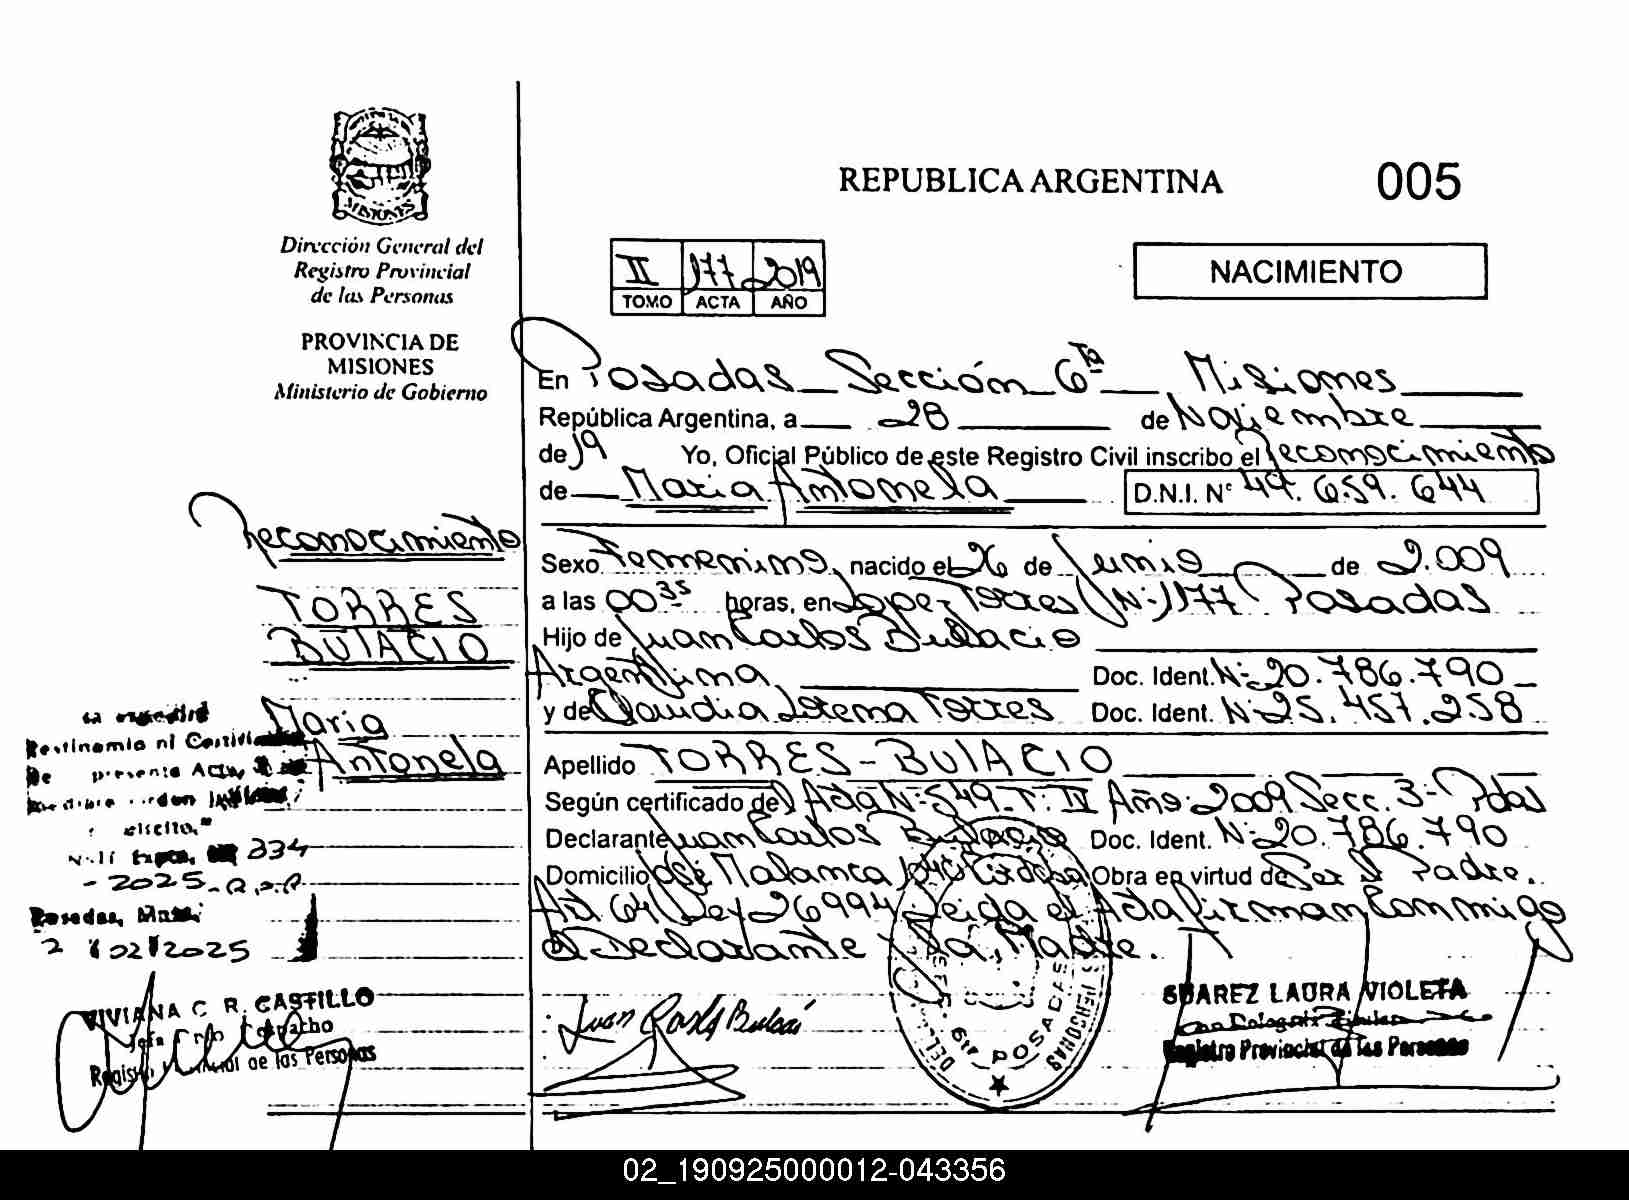 REPUBLICA ARGENTINA
005
Dirección General del
Registro Provincial
de las Personas
PROVINCIA DE
MISIONES
Ministerio de Gobierno
II 177 2019
TOMO ACTA AÑO
NACIMIENTO
En Posadas Sección 6ta Misiones
República Argentina, a 28 de Noviembre
de 19 Yo, Oficial Público de este Registro Civil inscribo el Reconocimiento
de Maria Antonela D.N.I. N° 49.659.644
Sexo Femenino, nacido el 26 de Junio de 2.009
a las 00 35 horas, en Lopez Torres N° 1177 Posadas
Hijo de Juan Carlos Bulacio
Argentina Doc. Ident. N° 20.786.790
y de Claudia Lorena Torres Doc. Ident. N° 25.457.258
Apellido TORRES-BULACIO
Según certificado de Acta N° 549 T° III Año: 2009 Secc. 3° Pdas
Declarante Juan Carlos Bulacio Doc. Ident. N° 20.786.790
Domicilio José Malanca Córdoba Obra en virtud de Ser el Padre.
Art 64 Ley 26994 Leida el Acta firman conmigo
el Declarante y la Madre.
Reconocimiento
TORRES
BULACIO
Maria
Antonela
presente Acta,
334
- 2025
Posadas, Mnes.
2 02 2025
VIVIANA C. R. CASTILLO
Despacho
de las Personas
Juan Carlos Bulacio
POSADAS
SUAREZ LAURA VIOLETA
Registro Provincial de las Personas
02_190925000012-043356